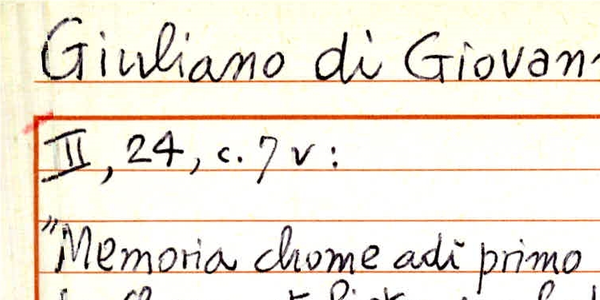 Giuliano di Giovan
II, 24, c. 7 v:
"Memoria chome adi primo